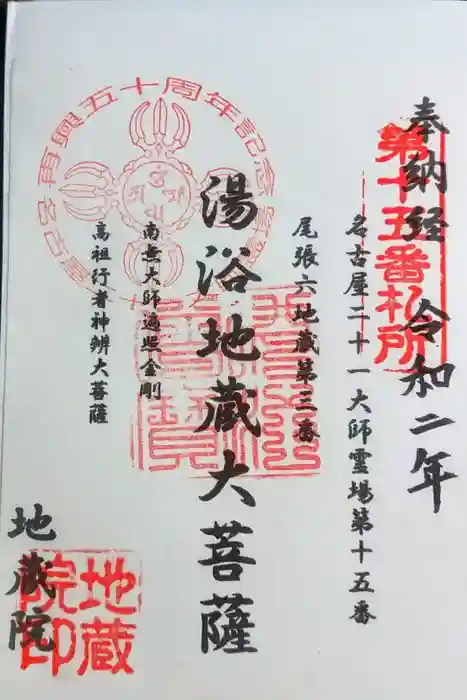 奉納経 令和二年
第十五番札所
名古屋二十一大師霊場第十五番
尾張六地蔵第三番
湯浴地蔵大菩薩
南無大師遍照金剛
高祖行者神辨大菩薩
再興五十周年記念
地蔵院
地蔵院印